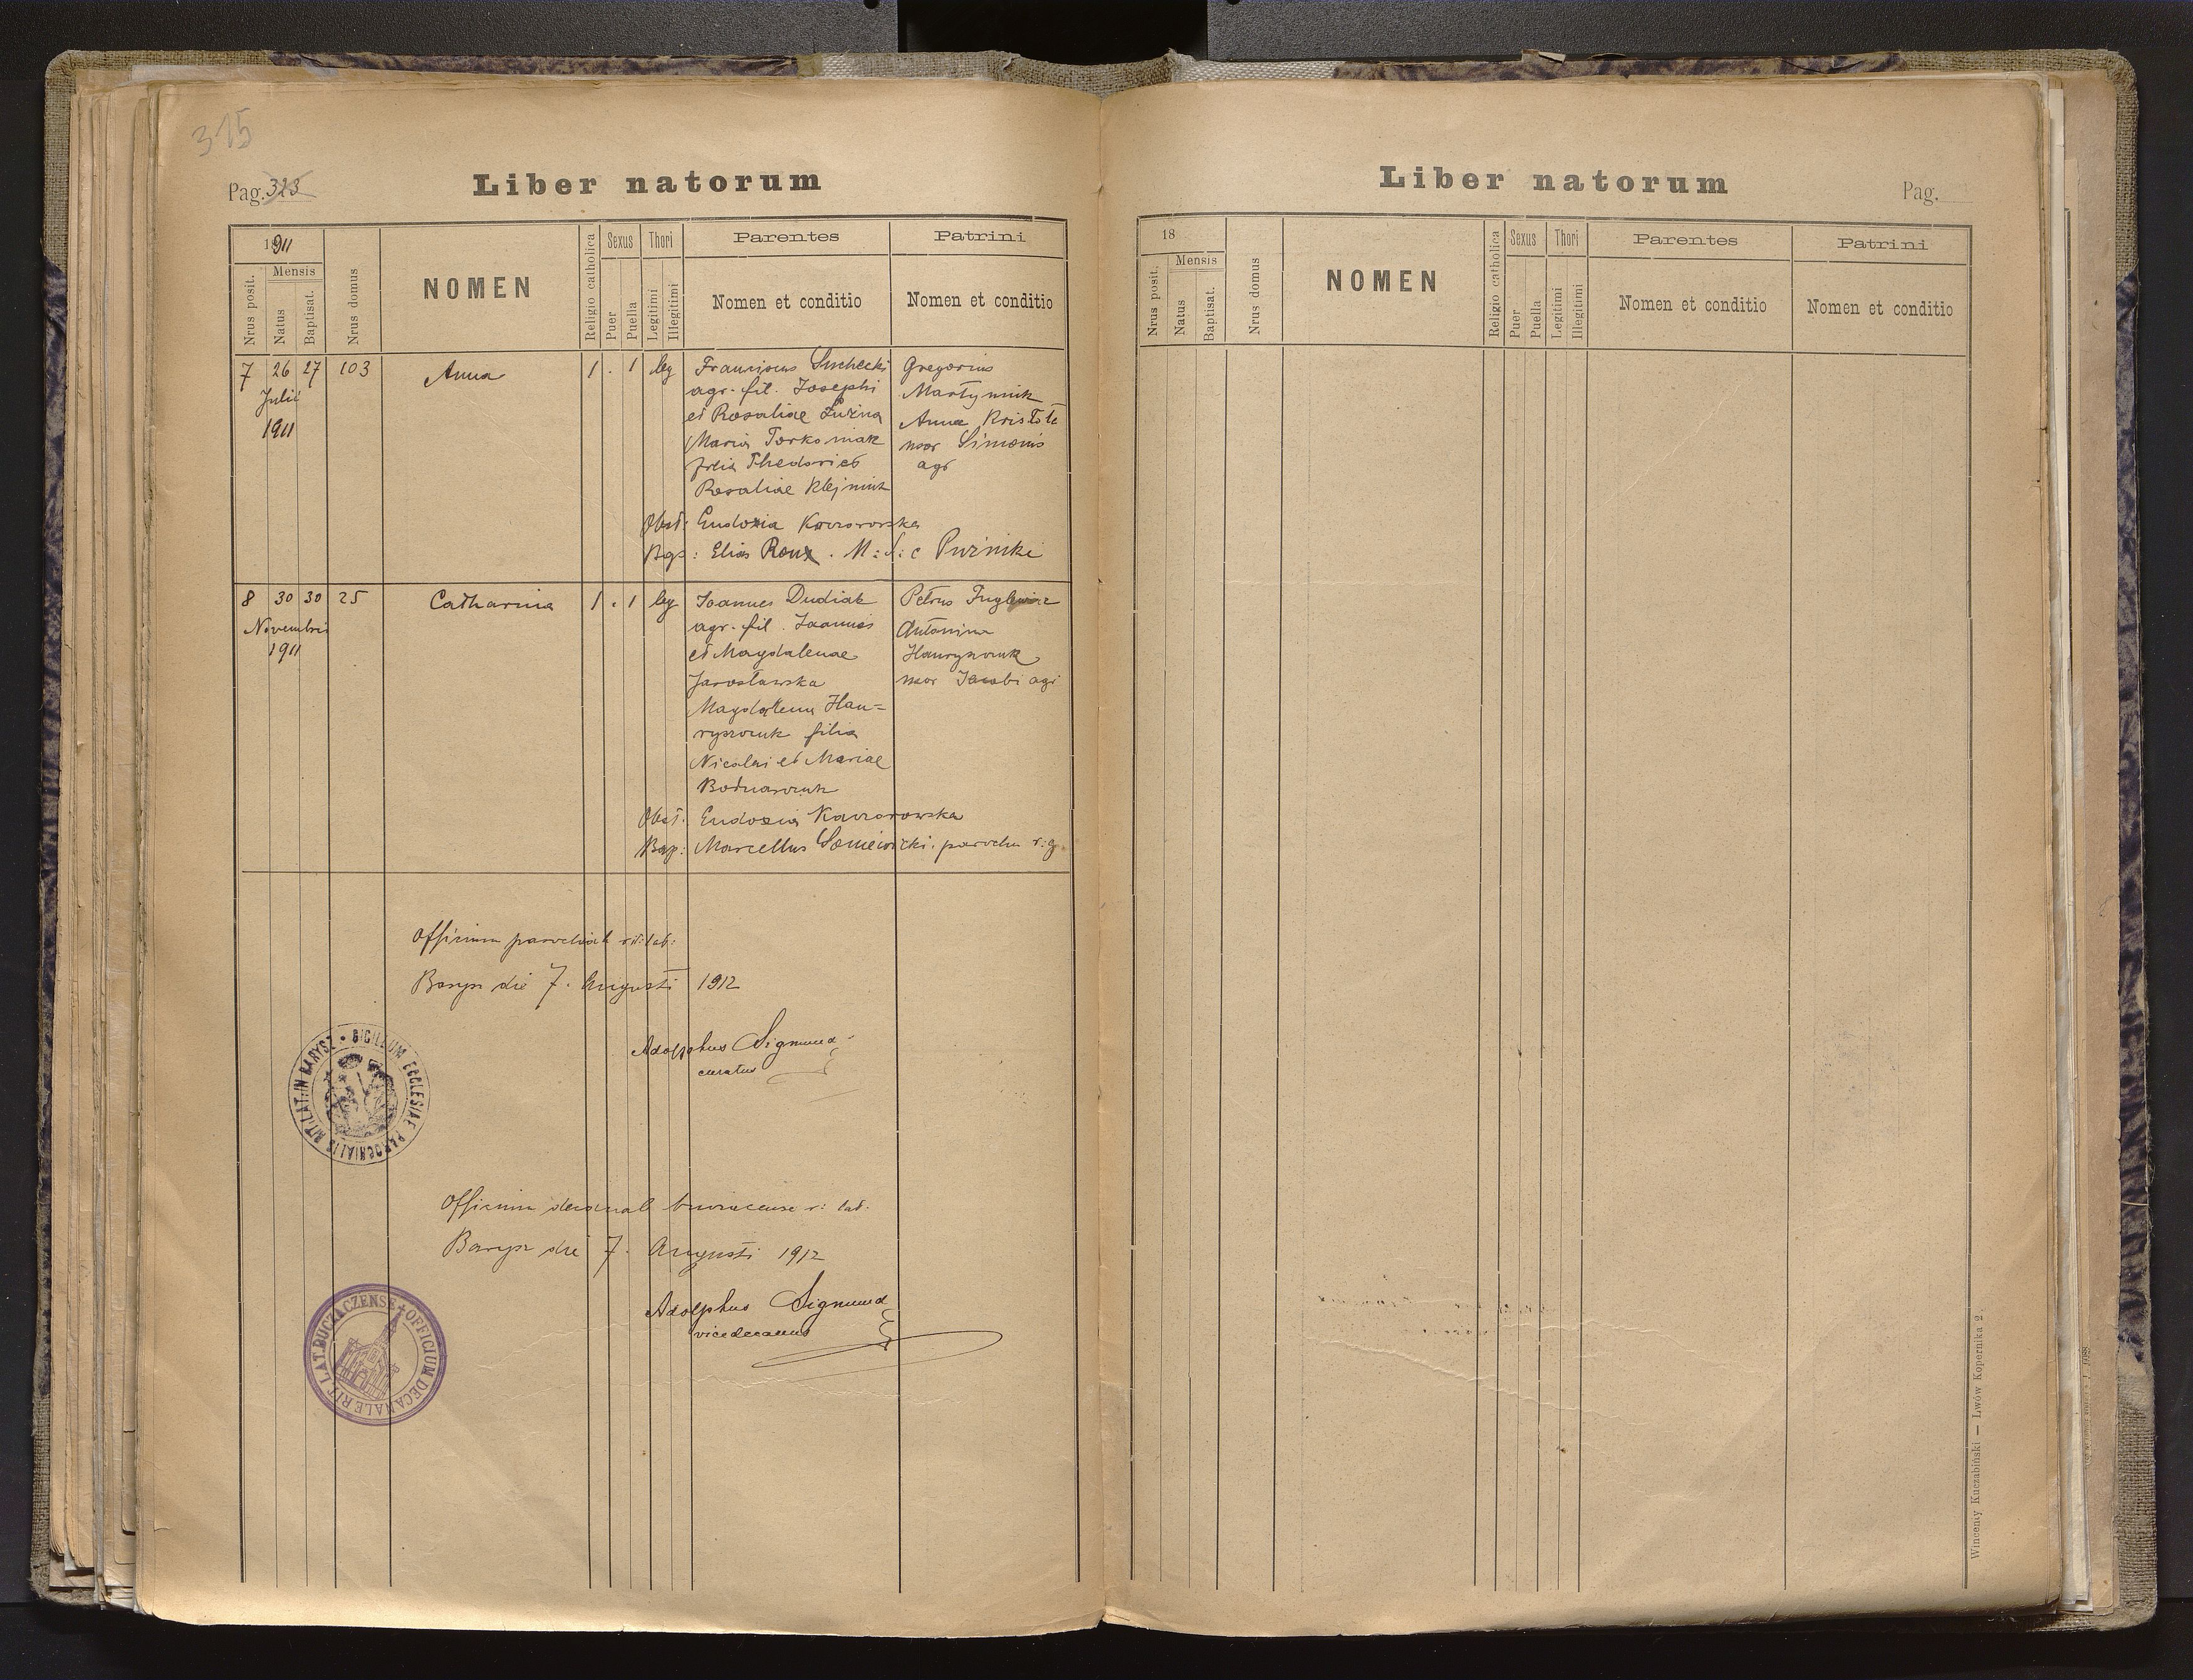 315
Pag. 323
Liber natorum
1911
Nrus posit.
Mensis
Natus
Baptisat.
Nrus domus
NOMEN
Religio catholica
Sexus
Puer
Puella
Thori
Legitimi
Illegitimi
Parentes
Nomen et conditio
Patrini
Nomen et conditio
7 26 27 103 Anna 1 . 1 leg
Julii
1911
Franciscus Suchecki
agr. fil. Josephi
et Rosaliae
Maria Torkoniak
filia
Rosaliae Klejniuk
Gregorius
Martyniuk
Anna
uxor Simonis
agr
Obst: Eudoxia
Bap: Elias
8 30 30 25 Catharina 1 . 1 leg
Novembris
1911
Joannes Dudiak
agr. fil. Joannis
et Magdalenae
Jarosławska
Magdalena Haw=
ryszczuk filia
Nicolai et Mariae
Bodnarczuk
Petrus
Antonina
Hawryszczuk
uxor Jacobi agr
Obst. Eudoxia
Bap: Marcellus
Officium parochiale rit: lat:
Barysz die 7. Augusti 1912
Adolphus Sigmund
curatus
SIGILLUM ECCLESIAE PAROCHIALIS RIT. LAT. IN BARYSZ
Officium decanale buczacense r: lat.
Barysz die 7. Augusti 1912
Adolphus Sigmund
vicedecanus
OFFICIUM DECANALE RIT. LAT. BUCZACZENSE
Liber natorum
Pag.
18
Nrus posit.
Mensis
Natus
Baptisat.
Nrus domus
NOMEN
Religio catholica
Sexus
Puer
Puella
Thori
Legitimi
Illegitimi
Parentes
Nomen et conditio
Patrini
Nomen et conditio
Wincenty Kuczabiński — Lwów Kopernika 2.